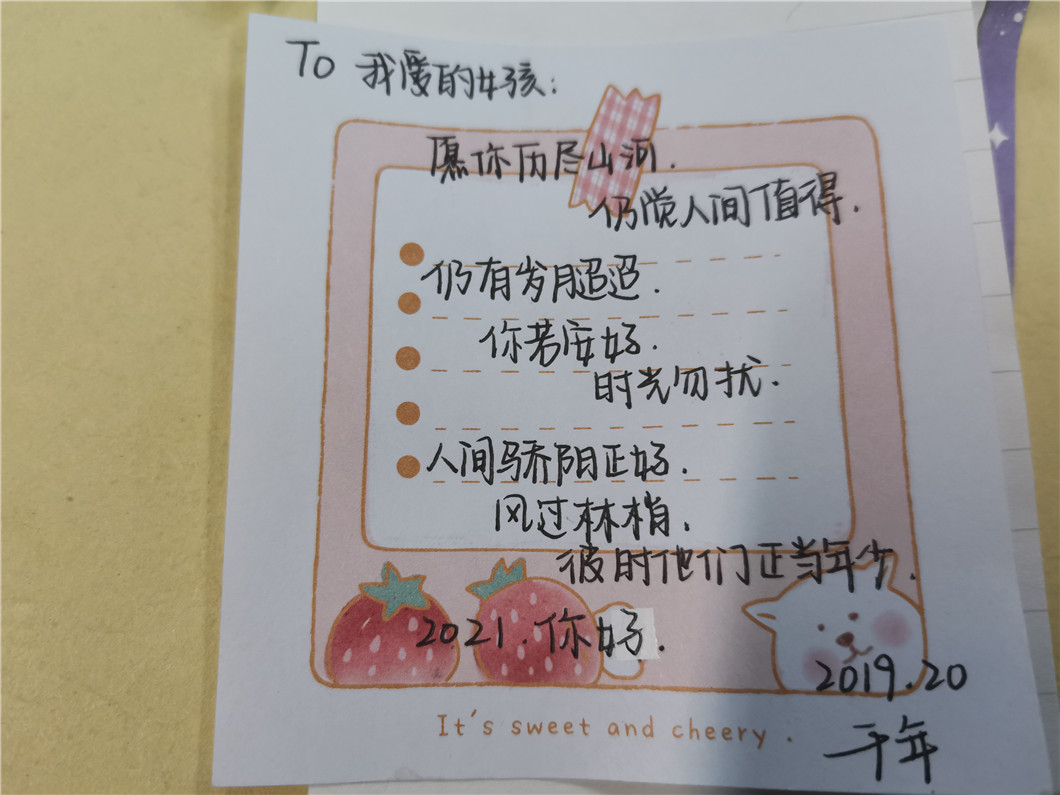 To 我爱的女孩：
愿你历尽山河.
仍觉人间值得.
仍有岁月迢迢.
你若安好.
时光勿扰.
人间骄阳正好.
风过林梢,
彼时他们正当年少.
2021.你好.
2019.20
It's sweet and cheery .
千年